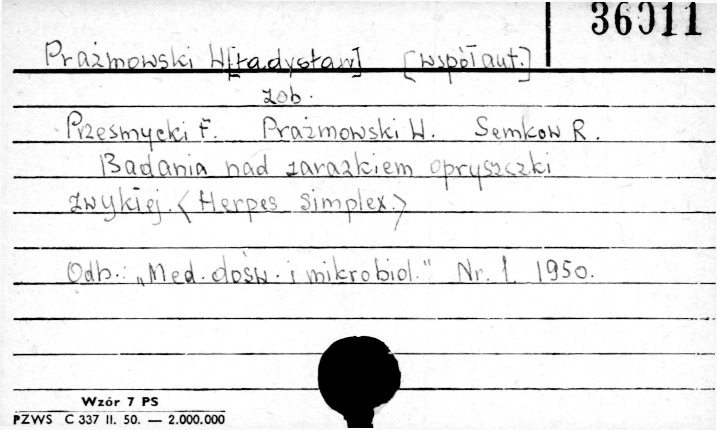 36011
Prażmowski W[ładysław] [współaut.]
zob.
Przesmycki F. Prażmowski W. Semkow R.
Badania nad zarazkiem opryszczki
zwykłej. <Herpes simplex.>
Odb.: "Med. dośw. i mikrobiol." Nr. 1 1950.
Wzór 7 PS
PZWS C 337 II. 50. — 2.000.000